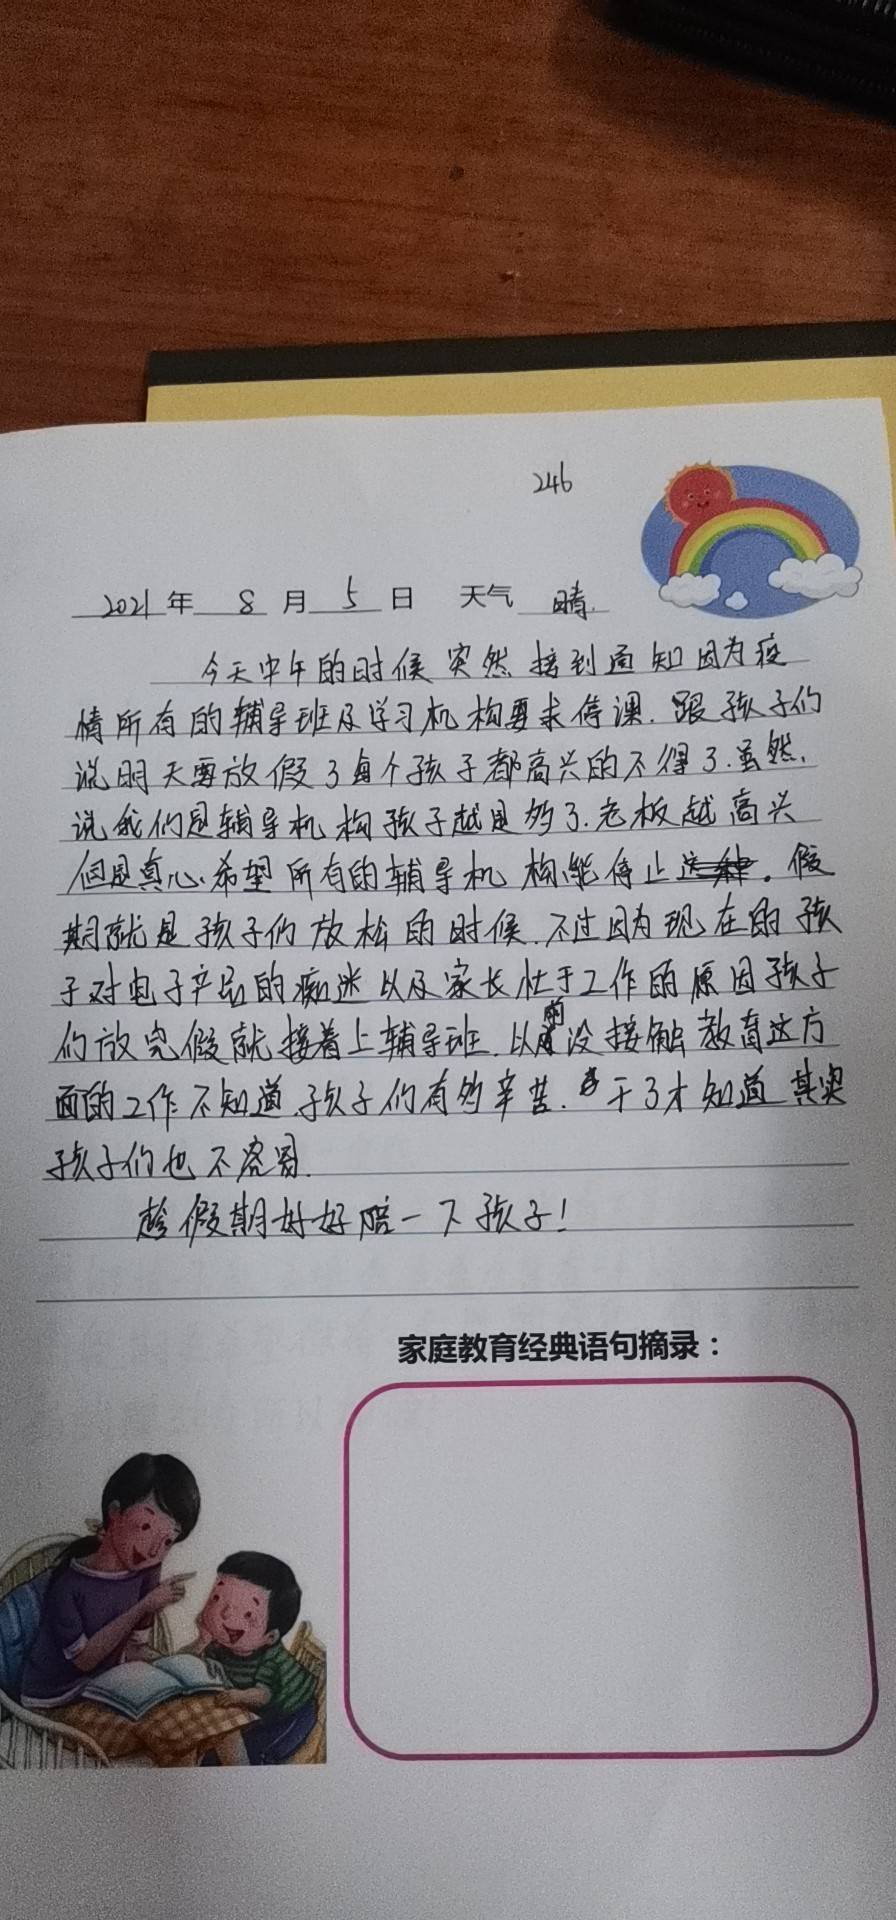 246
2021年 8月5日 天气 晴.
今天中午的时候突然接到通知因为疫
情所有的辅导班及学习机构要求停课.跟孩子们
说明天要放假了每个孩子都高兴的不得了.虽然.
说我们是辅导机构孩子越是多了.老板越高兴
但是真心希望所有的辅导机构能停止。假
期就是孩子们放松的时候.不过因为现在的孩
子对电子产品的痴迷以及家长忙于工作的原因孩子
们放完假就接着上辅导班.以前没接触教育这方
面的工作不知道孩子们有多辛苦.干了才知道其实
孩子们也不容易.
趁假期好好陪一下孩子!
家庭教育经典语句摘录：